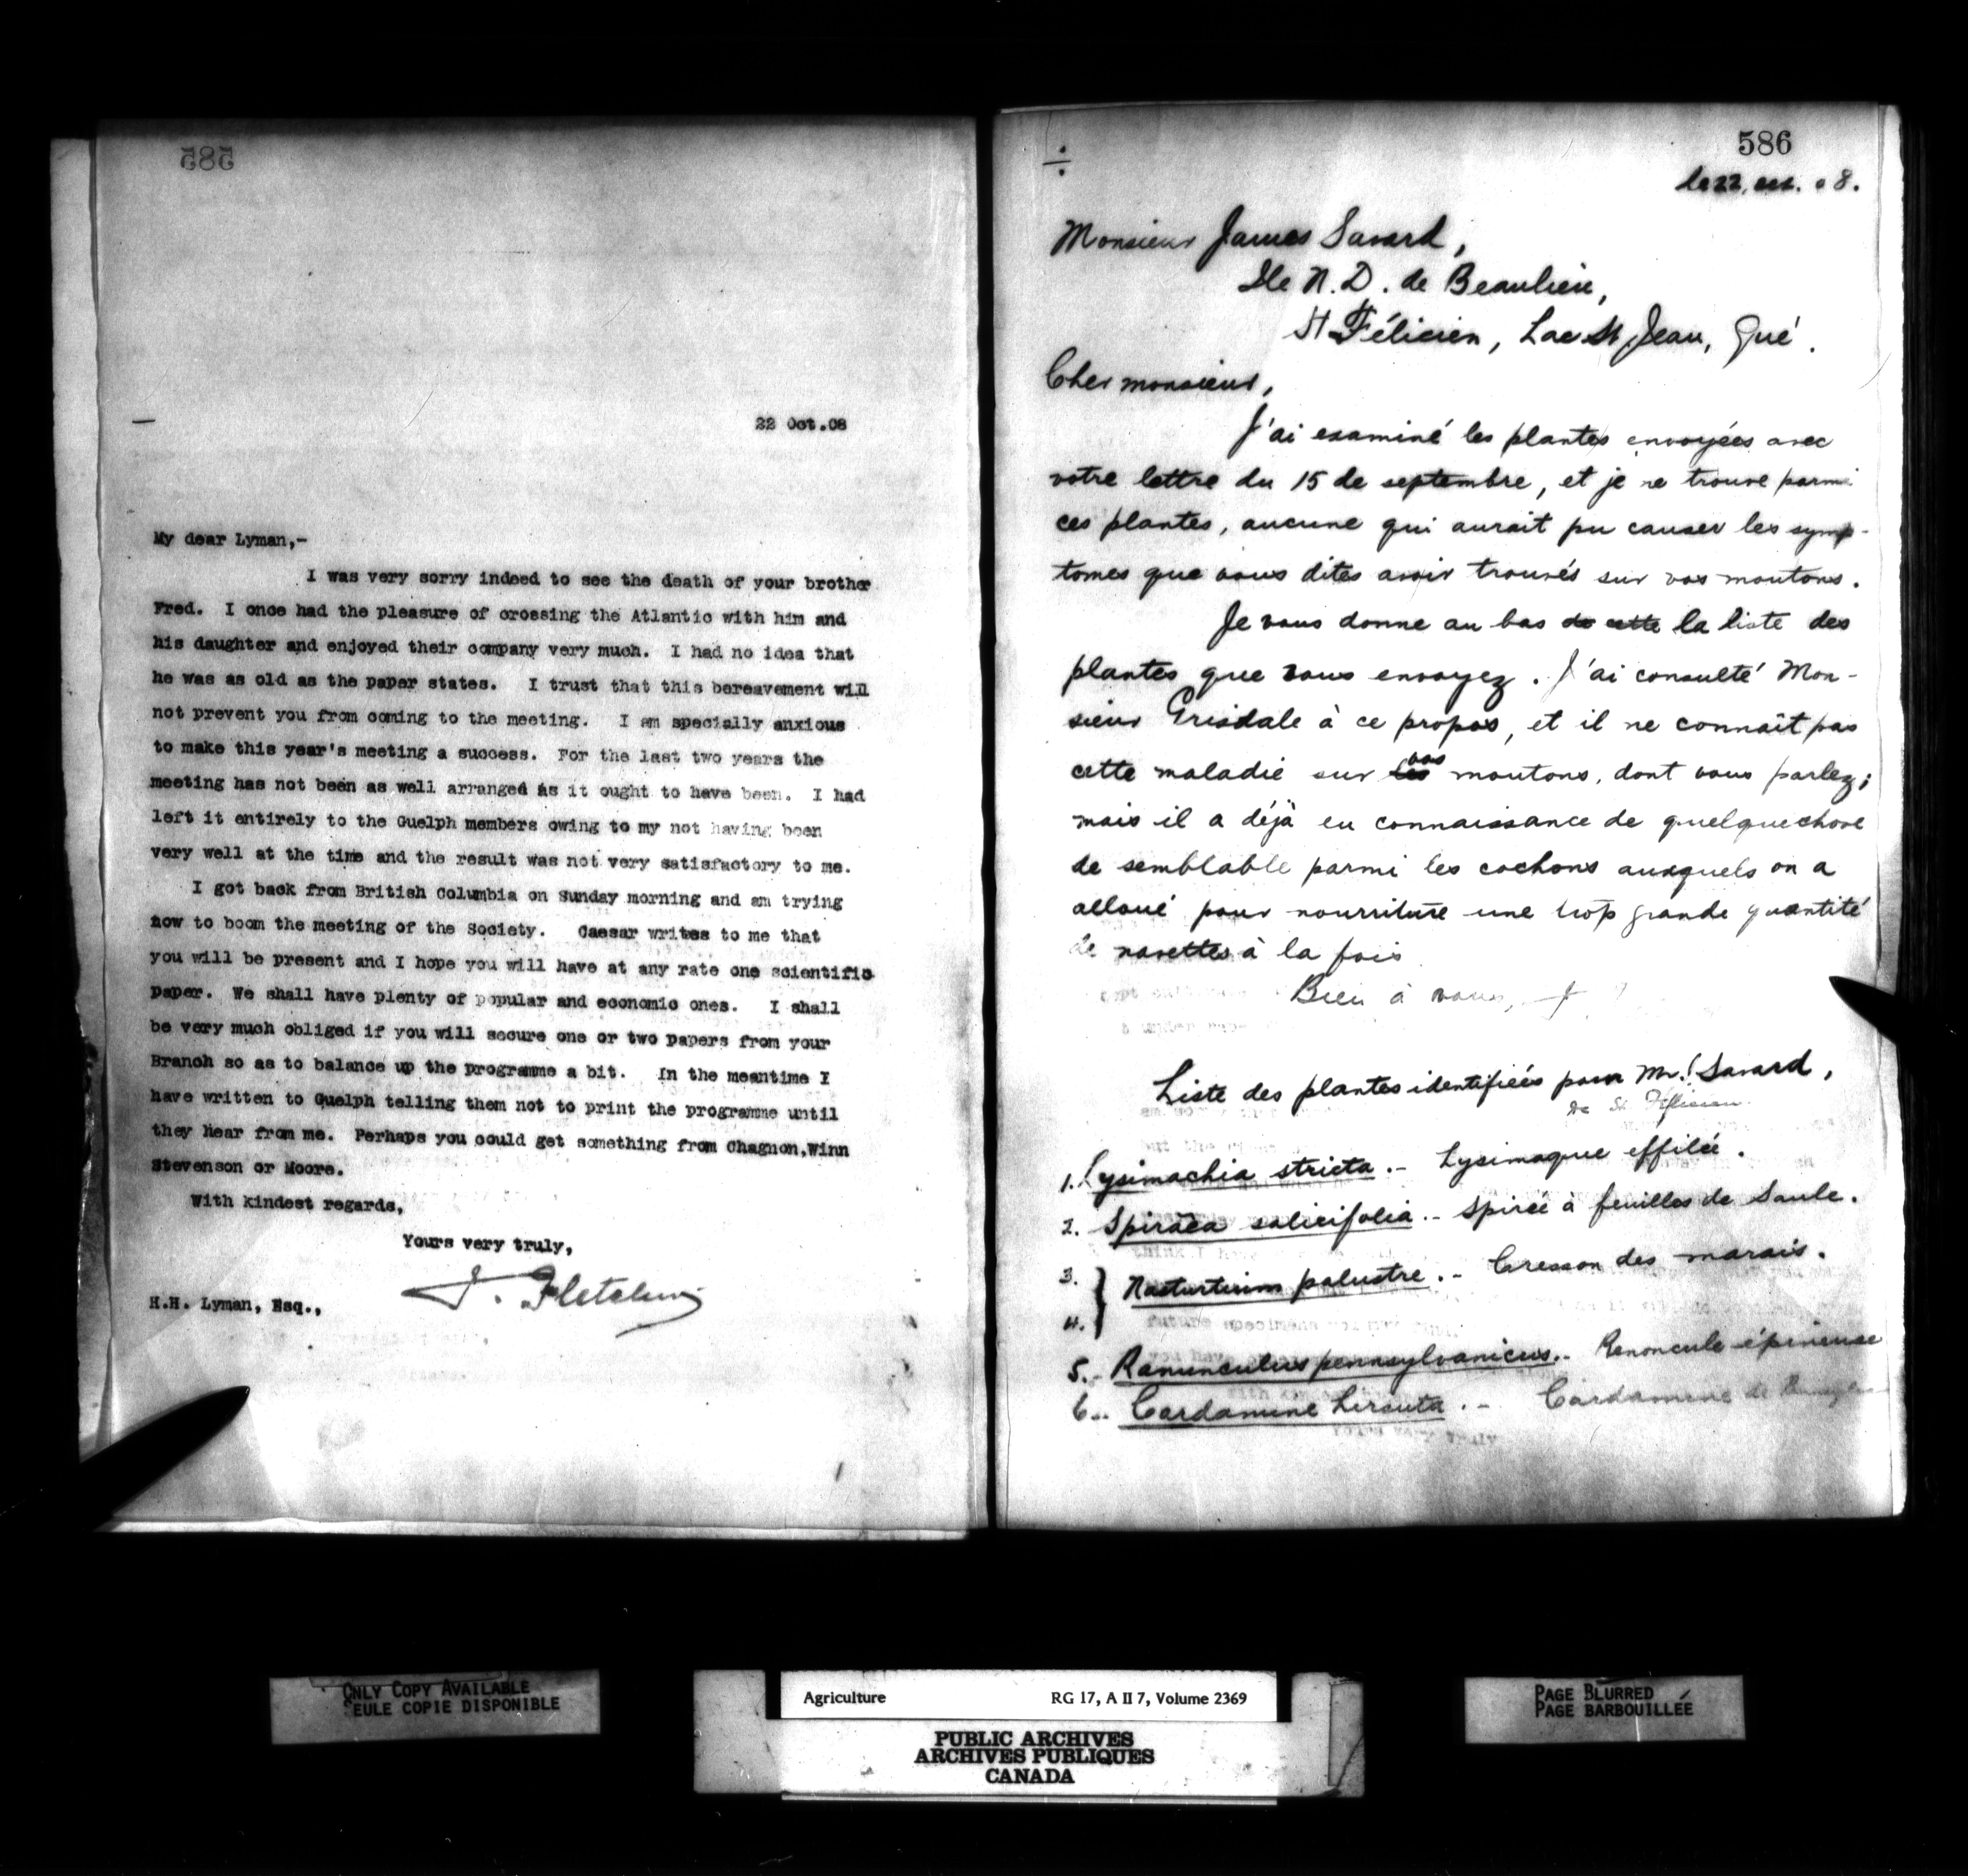 585
22 Oct.08
My dear Lyman,-
I was very sorry indeed to see the death of your brother
Fred. I once had the pleasure of crossing the Atlantic with him and
his daughter and enjoyed their company very much. I had no idea that
he was as old as the paper states. I trust that this bereavement will
not prevent you from coming to the meeting. I am specially anxious
to make this year's meeting a success. For the last two years the
meeting has not been as well arranged as it ought to have been. I had
left it entirely to the Guelph members owing to my not having been
very well at the time and the result was not very satisfactory to me.
I got back from British Columbia on Sunday morning and am trying
now to boom the meeting of the Society. Caesar writes to me that
you will be present and I hope you will have at any rate one scientific
paper. We shall have plenty of popular and economic ones. I shall
be very much obliged if you will secure one or two papers from your
Branch so as to balance up the programme a bit. In the meantime I
have written to Guelph telling them not to print the programme until
they hear from me. Perhaps you could get something from Chagnon,Winn
Stevenson or Moore.
With kindest regards,
Yours very truly,
J. Fletcher
H.H. Lyman, Esq.,
586
le 22, oct. 08.
Monsieur James Savard,
Ile N.D. de Beaulieu,
St Félicien, Lac St Jean, Qué.
Cher monsieur,
J'ai examiné les plantes envoyées avec
votre lettre du 15 de septembre, et je ne trouve parmi
ces plantes, aucune qui aurait pu causer les symp-
tomes que vous dites avoir trouvés sur vos moutons.
Je vous donne au bas de cette la liste des
plantes que vous envoyez. J'ai consulté Mon-
sieur Grisdale à ce propos, et il ne connaît pas
cette maladie sur les vos moutons, dont vous parlez;
mais il a déjà eu connaissance de quelquechose
de semblable parmi les cochons auxquels on a
alloué pour nourriture une trop grande quantité
de navettes à la fois
Bien à vous, J
Liste des plantes identifiées pour Mr. Savard,
de St. Félicien.
1. Lysimachia stricta.- Lysimaque effilée.
2. Spiraea salicifolia.- Spirée à feuilles de Saule.
3. } Nasturtium palustre.- Cresson des marais.
4.
5.- Ranunculus pennsylvanicus.- Renoncule épineuse
6.- Cardamine hirsuta.- Cardamine de
ONLY COPY AVAILABLE
SEULE COPIE DISPONIBLE
Agriculture RG 17, A II 7, Volume 2369
PUBLIC ARCHIVES
ARCHIVES PUBLIQUES
CANADA
PAGE BLURRED
PAGE BARBOUILLÉE